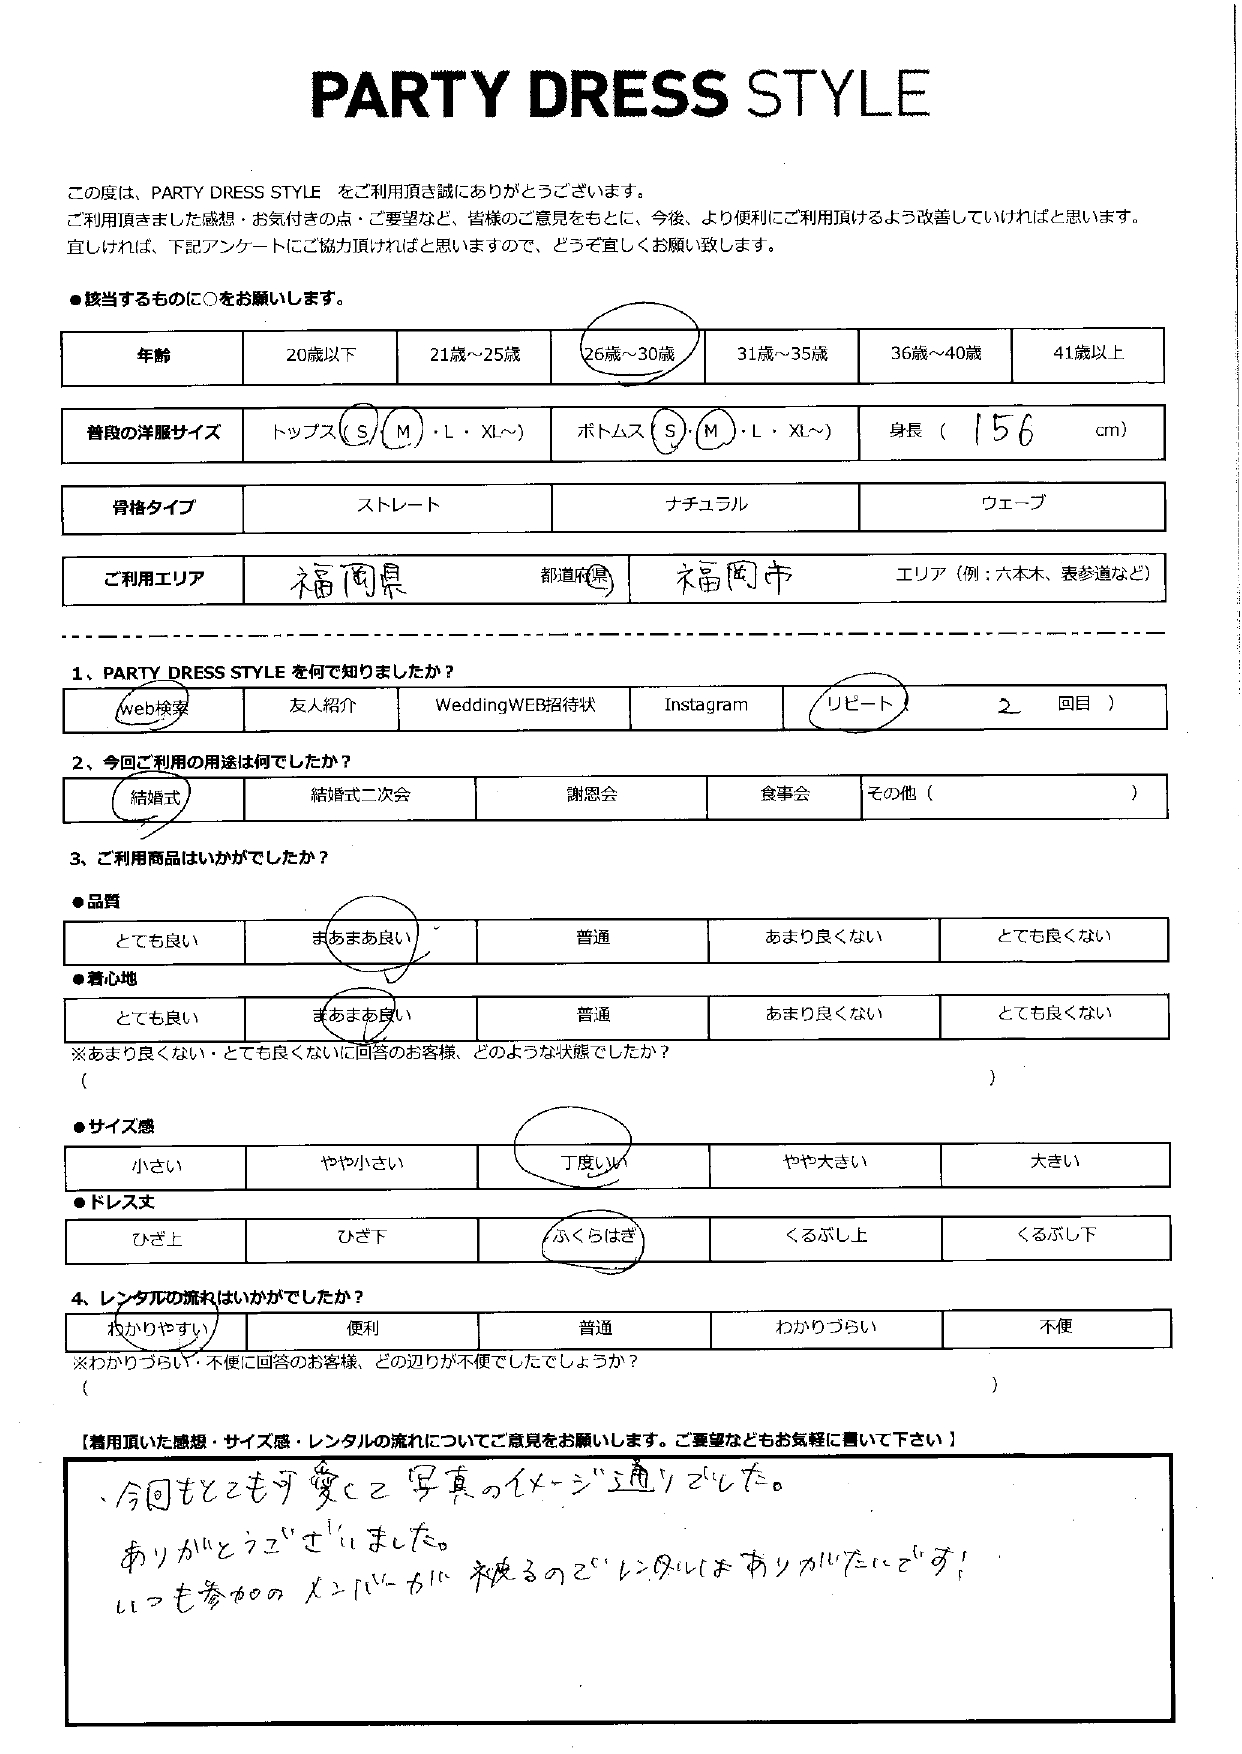 PARTY DRESS STYLE
この度は、PARTY DRESS STYLE をご利用頂き誠にありがとうございます。
ご利用頂きました感想・お気付きの点・ご要望など、皆様のご意見をもとに、今後、より便利にご利用頂けるよう改善していければと思います。
宜しければ、下記アンケートにご協力頂ければと思いますので、どうぞ宜しくお願い致します。
●該当するものに○をお願いします。
年齢 20歳以下 21歳～25歳 26歳～30歳 31歳～35歳 36歳～40歳 41歳以上
普段の洋服サイズ トップス（S・M・L・XL～） ボトムス（S・M・L・XL～） 身長（156 cm）
骨格タイプ ストレート ナチュラル ウェーブ
ご利用エリア 福岡県 都道府県 福岡市 エリア（例：六本木、表参道など）
1、PARTY DRESS STYLE を何で知りましたか？
web検索 友人紹介 WeddingWEB招待状 Instagram リピート（ 2 回目 ）
2、今回ご利用の用途は何でしたか？
結婚式 結婚式二次会 謝恩会 食事会 その他（ ）
3、ご利用商品はいかがでしたか？
●品質
とても良い まあまあ良い 普通 あまり良くない とても良くない
●着心地
とても良い まあまあ良い 普通 あまり良くない とても良くない
※あまり良くない・とても良くないに回答のお客様、どのような状態でしたか？
（ ）
●サイズ感
小さい やや小さい 丁度いい やや大きい 大きい
●ドレス丈
ひざ上 ひざ下 ふくらはぎ くるぶし上 くるぶし下
4、レンタルの流れはいかがでしたか？
わかりやすい 便利 普通 わかりづらい 不便
※わかりづらい・不便に回答のお客様、どの辺りが不便でしたでしょうか？
（ ）
【着用頂いた感想・サイズ感・レンタルの流れについてご意見をお願いします。ご要望などもお気軽に書いて下さい】
・今回もとても可愛くて写真のイメージ通りでした。
ありがとうございました。
いつも参加のメンバーが被るのでレンタルはありがたいです！